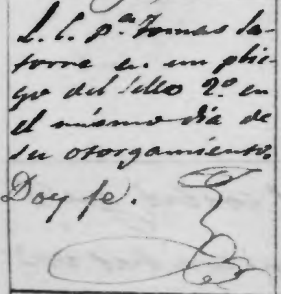 L. C. p.ª Tomas la-
torre en un plie-
go del sello 2.º en
el mismo dia de
su otorgamiento.
Doy fe.